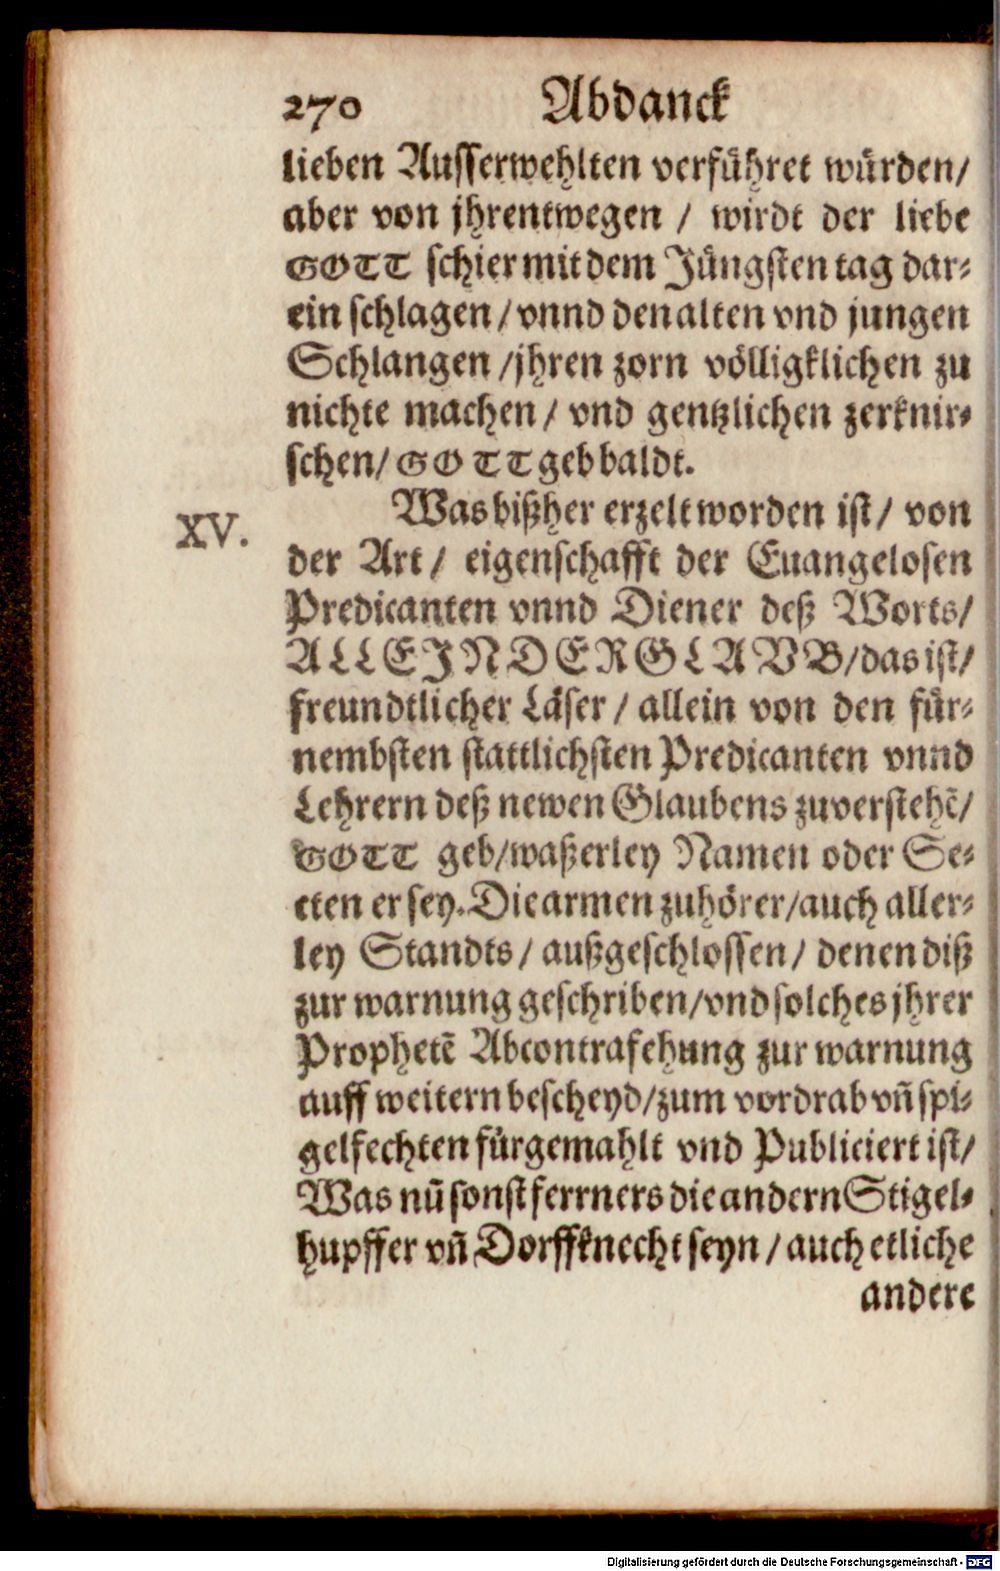 270 Abdanck
lieben Ausserwehlten verführet würden/
aber von jhrentwegen / wirdt der liebe
GOTT schier mit dem Jüngsten tag dar-
ein schlagen / vnnd den alten vnd jungen
Schlangen / jhren zorn völligklichen zu
nichte machen / vnd gentzlichen zerknir-
schen / GOTT geb baldt.
XV.
Was bißher erzelt worden ist / von
der Art / eigenschafft der Euangelosen
Predicanten vnnd Diener deß Worts /
ALLEIN DER GLAVB / das ist /
freundtlicher Läser / allein von den für-
nembsten stattlichsten Predicanten vnnd
Lehrern deß newen Glaubens zuverstehẽ /
GOTT geb / waßerley Namen oder Se-
cten er sey. Die armen zuhörer / auch aller-
ley Standts / außgeschlossen / denen diß
zur warnung geschriben / vnd solches jhrer
Prophetẽ Abcontrafehung zur warnung
auff weitern bescheyd / zum vordrab vñ spi-
gelfechten fürgemahlt vnd Publiciert ist /
Was nũ sonst ferrners die andern Stigel-
hupffer vñ Dorffknecht seyn / auch etliche
andere
Digitalisierung gefördert durch die Deutsche Forschungsgemeinschaft - DFG